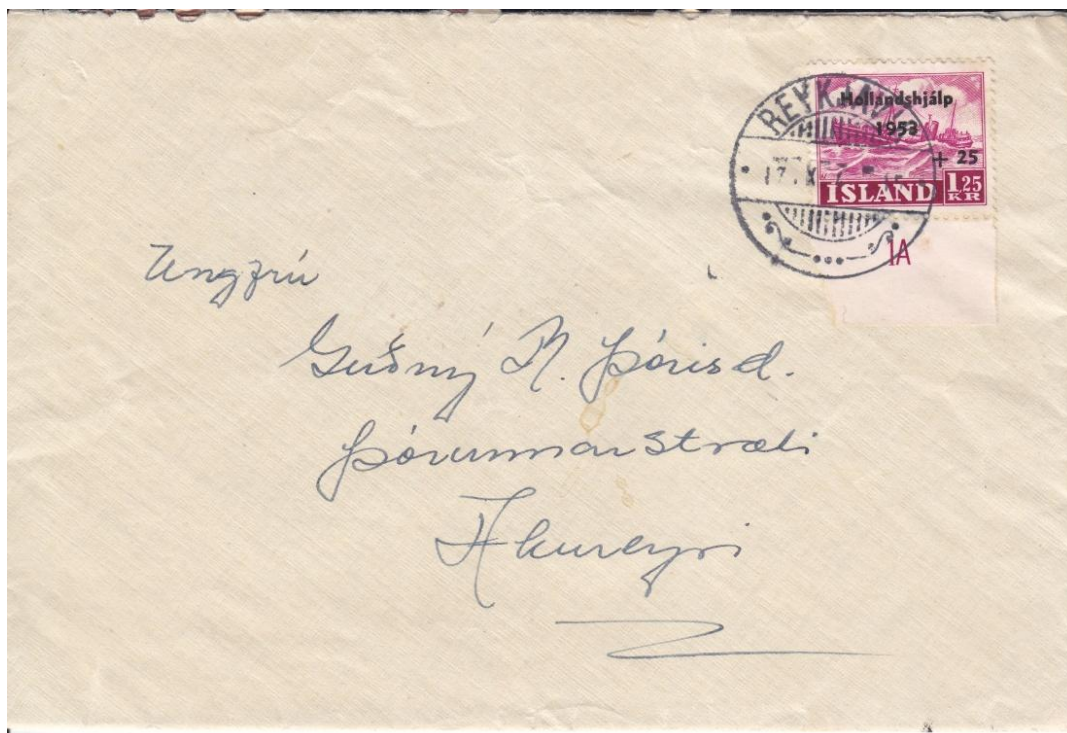 REYKJAVÍK
Hollandshjálp
1953
+ 25
ÍSLAND 1 25 KR
1A
Ungfrú
Guðný R. Þórisd.
Þórunnarstræti
Akureyri